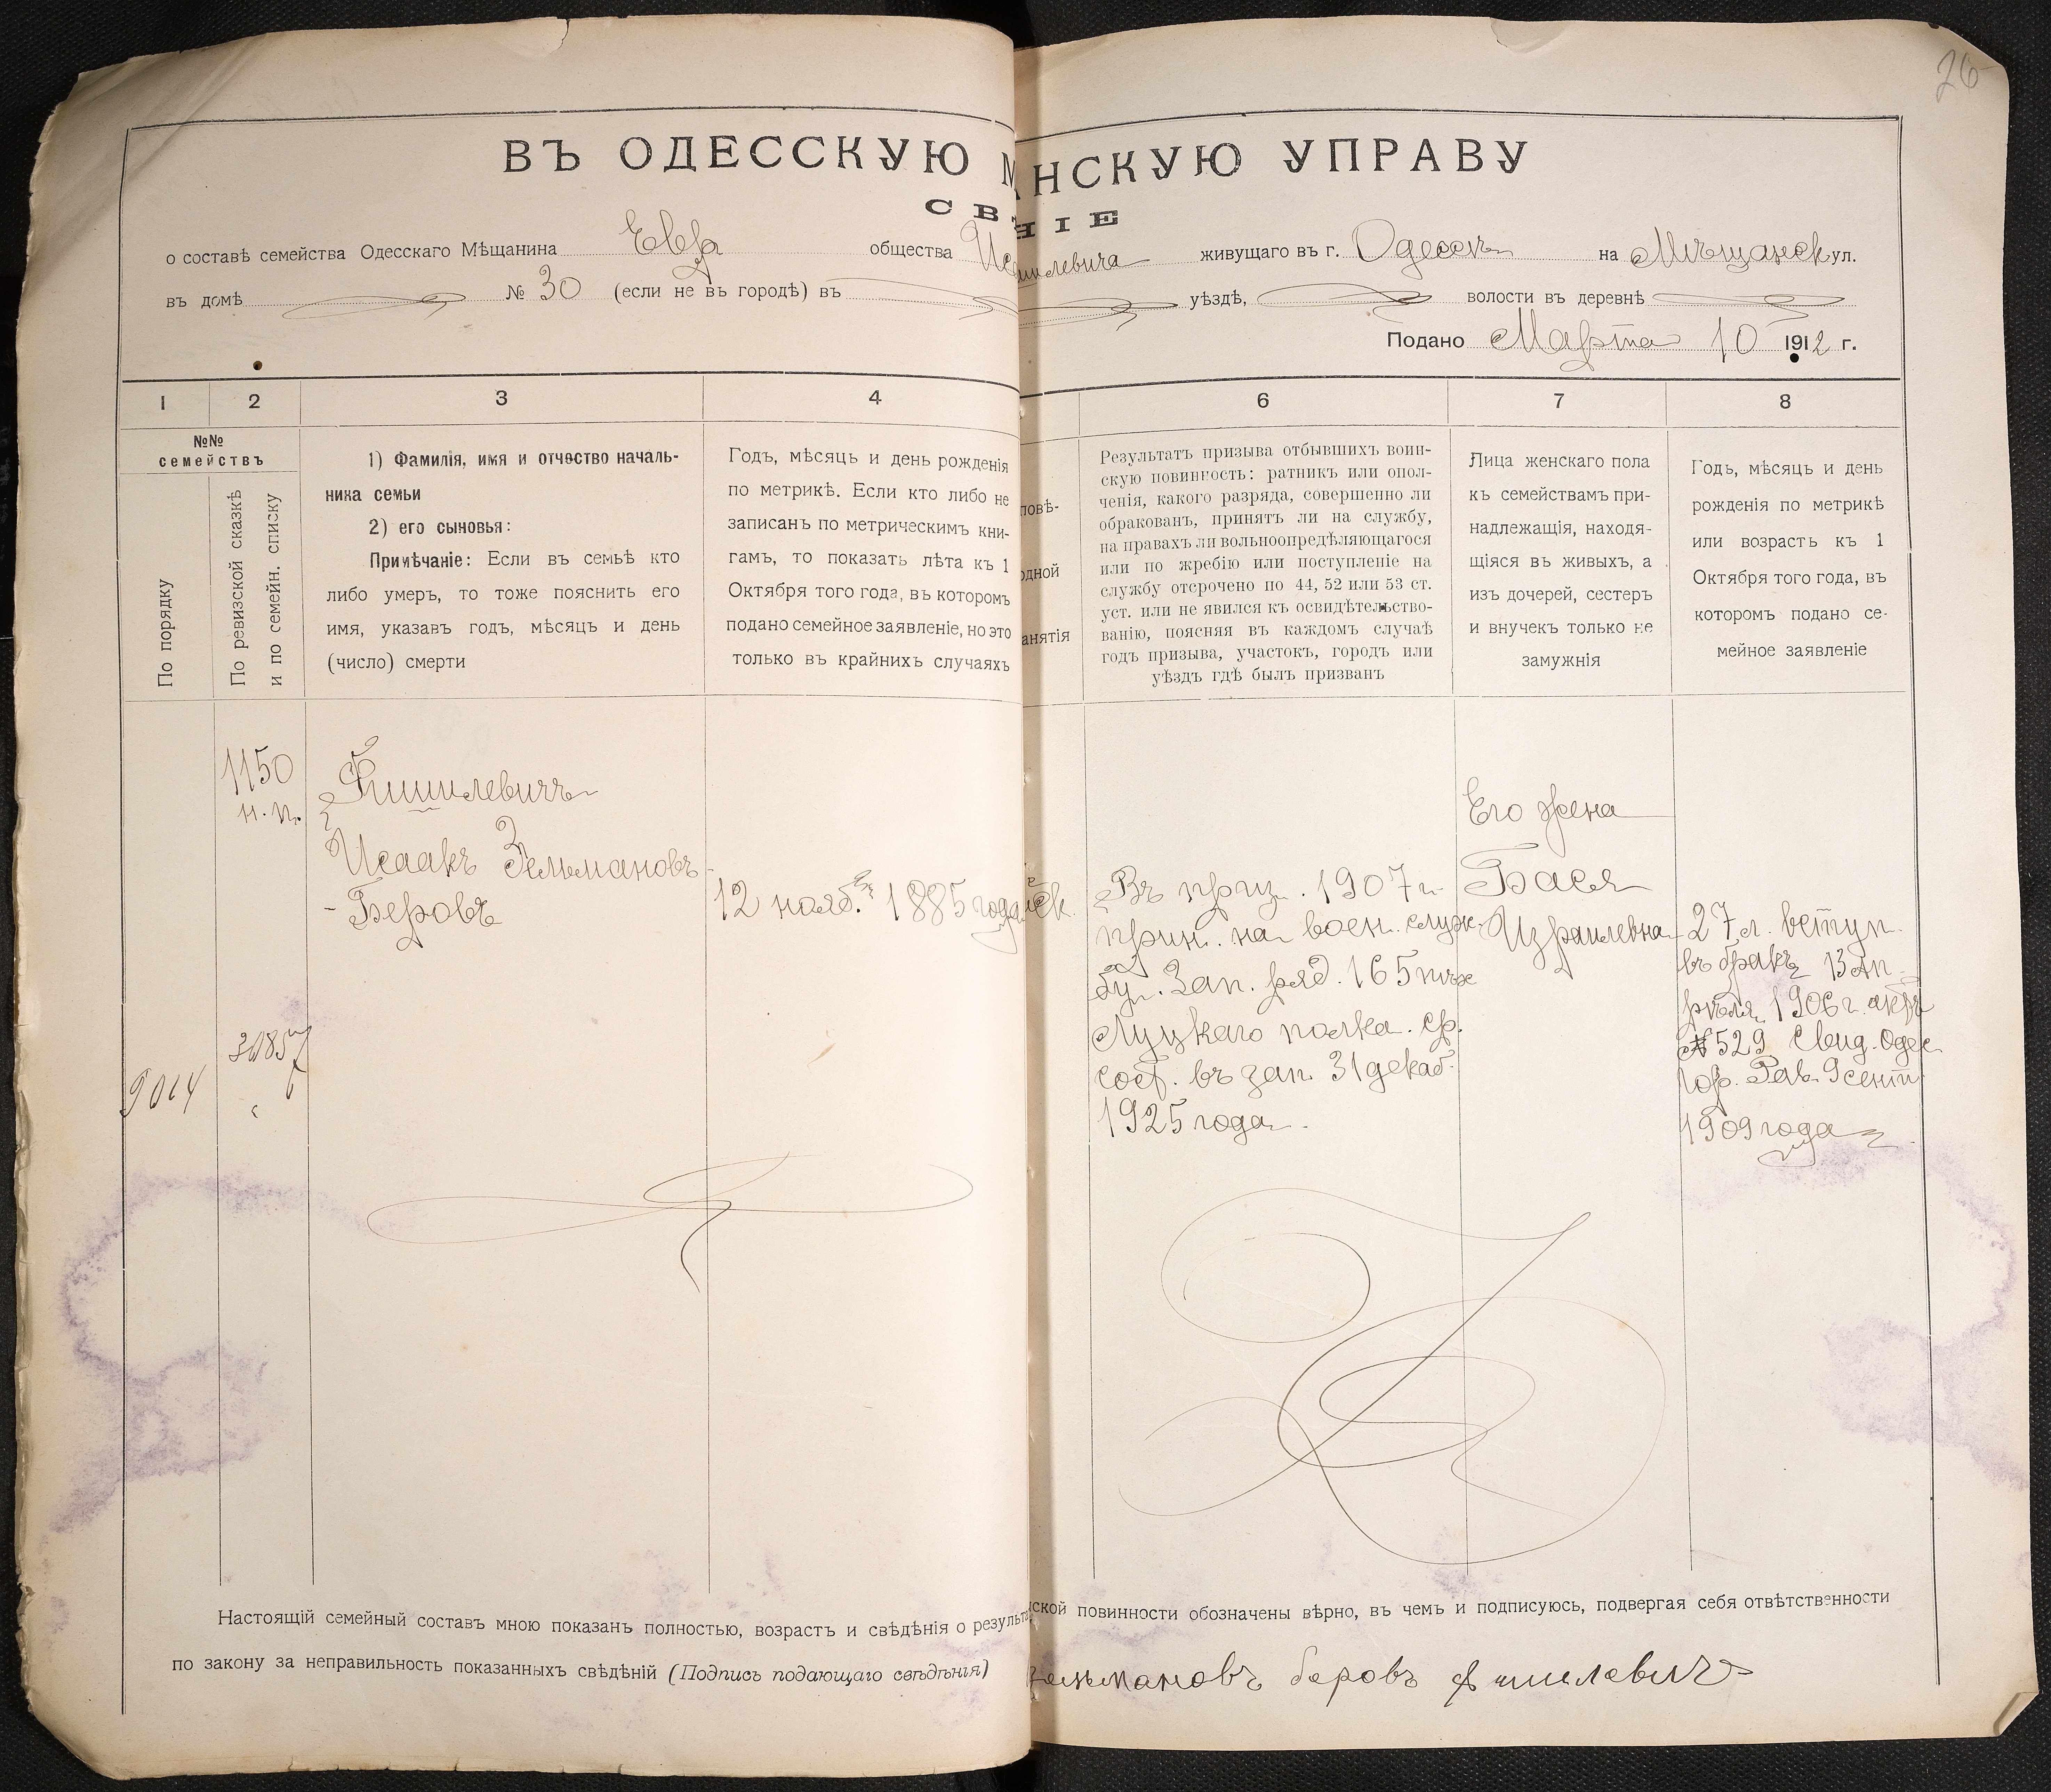 26
ВЪ ОДЕССКУЮ М
НСКУЮ УПРАВУ
СВ
НІЕ
о составѣ семейства Одесскаго Мѣщанина Евр общества
живущаго въ г. Одессѣ на Мѣщанск ул.
въ домѣ № 30 (если не въ городѣ) въ
уѣздѣ, волости въ деревнѣ
Подано Марта 10 1912 г.
1 2 3 4
6 7 8
№№
семействъ
По порядку
По ревизской сказкѣ
и по семейн. списку
1) Фамилія, имя и отчество началь-
ника семьи
2) его сыновья:
Примѣчаніе: Если въ семьѣ кто
либо умеръ, то тоже пояснить его
имя, указавъ годъ, мѣсяцъ и день
(число) смерти
Годъ, мѣсяцъ и день рожденія
по метрикѣ. Если кто либо не
записанъ по метрическимъ кни-
гамъ, то показать лѣта къ 1
Октября того года, въ которомъ
подано семейное заявленіе, но это
только въ крайнихъ случаяхъ
повѣ-
одной
анятія
Результатъ призыва отбывшихъ воин-
скую повинность: ратникъ или опол-
ченія, какого разряда, совершенно ли
обракованъ, принятъ ли на службу,
на правахъ ли вольноопредѣляющагося
или по жребію или поступленіе на
службу отсрочено по 44, 52 или 53 ст.
уст. или не явился къ освидѣтельство-
ванію, поясняя въ каждомъ случаѣ
годъ призыва, участокъ, городъ или
уѣздъ гдѣ былъ призванъ
Лица женскаго пола
къ семействамъ при-
надлежащія, находя-
щіяся въ живыхъ, а
изъ дочерей, сестеръ
и внучекъ только не
замужнія
Годъ, мѣсяцъ и день
рожденія по метрикѣ
или возрастъ къ 1
Октября того года, въ
которомъ подано се-
мейное заявленіе
1150
н. п.
9014
Фишилевичъ
Исаакъ Зельмановъ
- Беровъ
12 нояб. 1885 года
Въ приз. 1907 г.
прин. на воен. служ.
Зап. ряд. 165 пѣх
Луцкаго полка. ср.
сост. въ зап. 31 декаб.
1925 года.
Его жена
Бася
Израилевна
27 л. вступ.
въ бракъ 13 Ап-
рѣля 1906 г. актъ
№ 529 Свид. Одес.
гор. Рав. 9 сент
1909 года
Настоящій семейный составъ мною показанъ полностью, возрастъ и свѣдѣнія о результа
ской повинности обозначены вѣрно, въ чемъ и подписуюсь, подвергая себя отвѣтственности
по закону за неправильность показанныхъ свѣдѣній (Подпись подающаго свѣдѣнія)
зельмановъ беровъ фишилевичъ